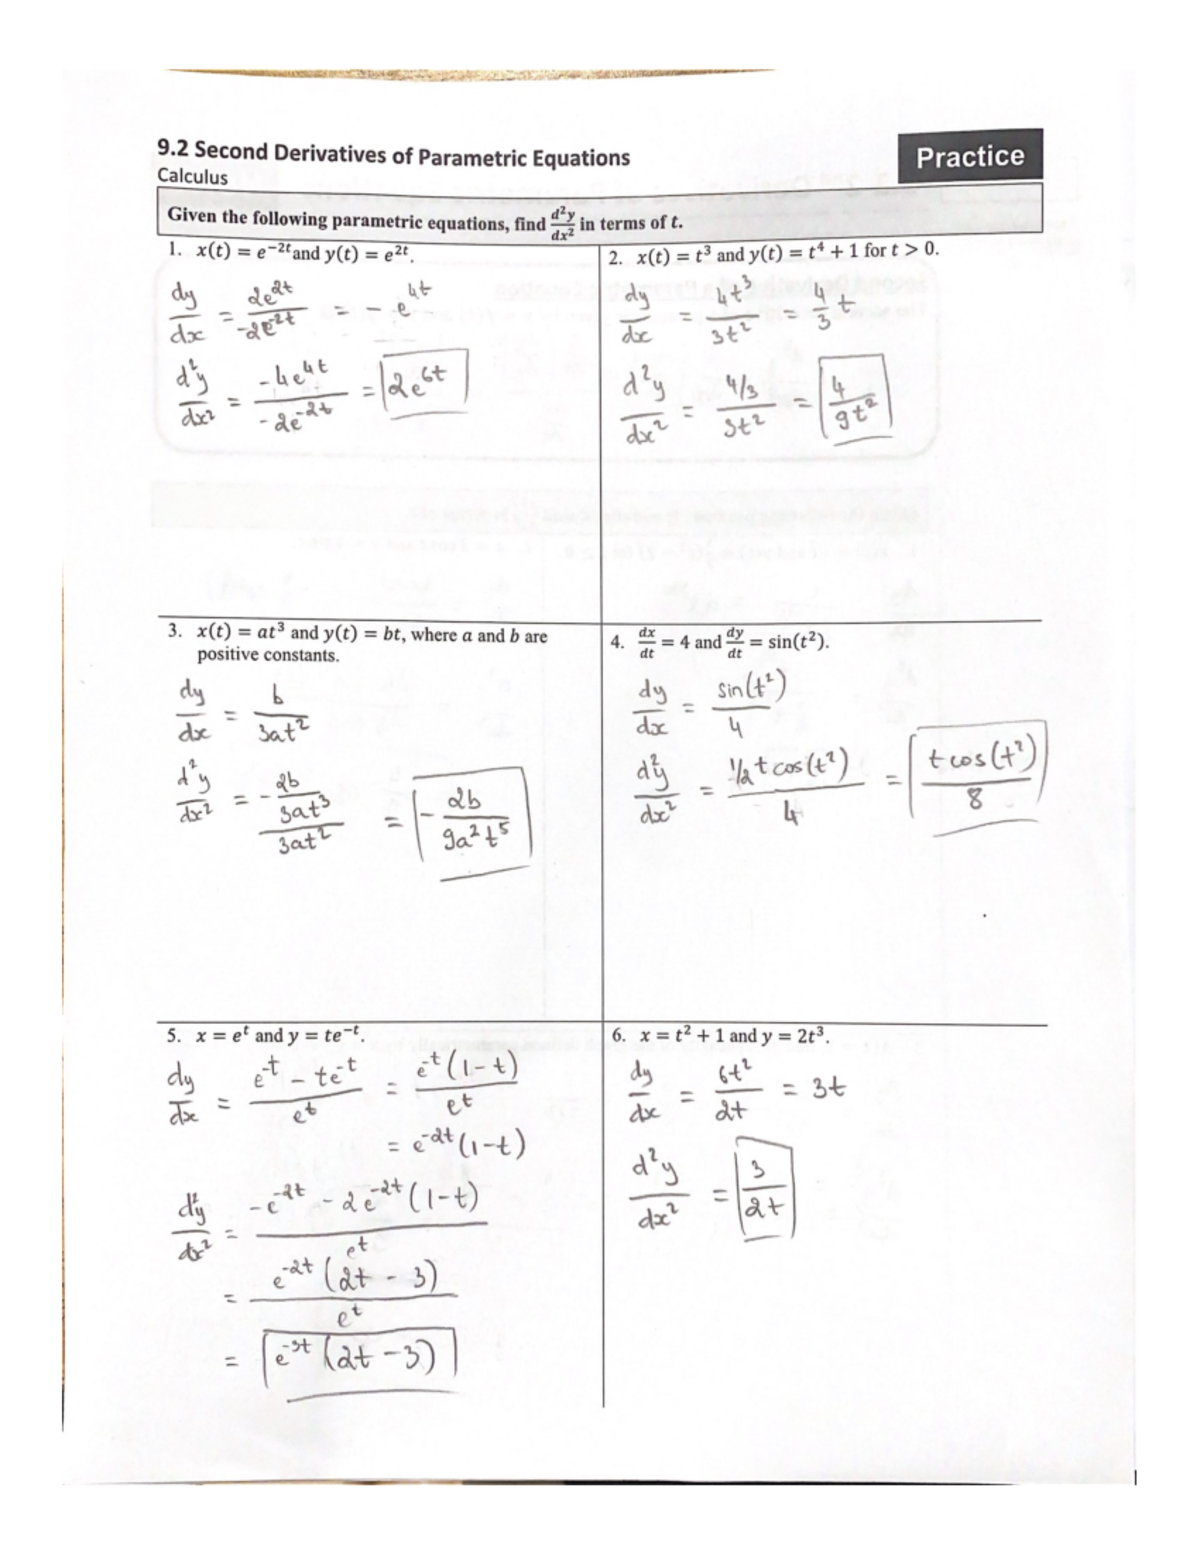 9.2 Second Derivatives of Parametric Equations
Practice
Calculus
Given the following parametric equations, find d²y/dx² in terms of t.
1. x(t) = e^(−2t) and y(t) = e^(2t).
dy/dx = 2e^(2t)/-2e^(-2t) = - e^(4t)
d²y/dx² = -4e^(4t)/-2e^(-2t) = 2e^(6t)
2. x(t) = t³ and y(t) = t⁴ + 1 for t > 0.
dy/dx = 4t³/3t² = 4/3 t
d²y/dx² = 4/3/3t² = 4/9t²
3. x(t) = at³ and y(t) = bt, where a and b are
positive constants.
dy/dx = b/3at²
d²y/dx² = - 2b/3at³/3at² = - 2b/9a²t⁵
4. dx/dt = 4 and dy/dt = sin(t²).
dy/dx = sin(t²)/4
d²y/dx² = 1/2 t cos(t²)/4 = t cos(t²)/8
5. x = e^t and y = te^(−t).
dy/dx = e^(-t) - te^(-t)/e^t = e^(-t)(1-t)/e^t
= e^(-2t)(1-t)
d²y/dx² = -e^(-2t) - 2e^(-2t)(1-t)/e^t
= e^(-2t)(2t - 3)/e^t
= e^(-3t)(2t - 3)
6. x = t² + 1 and y = 2t³.
dy/dx = 6t²/2t = 3t
d²y/dx² = 3/2t